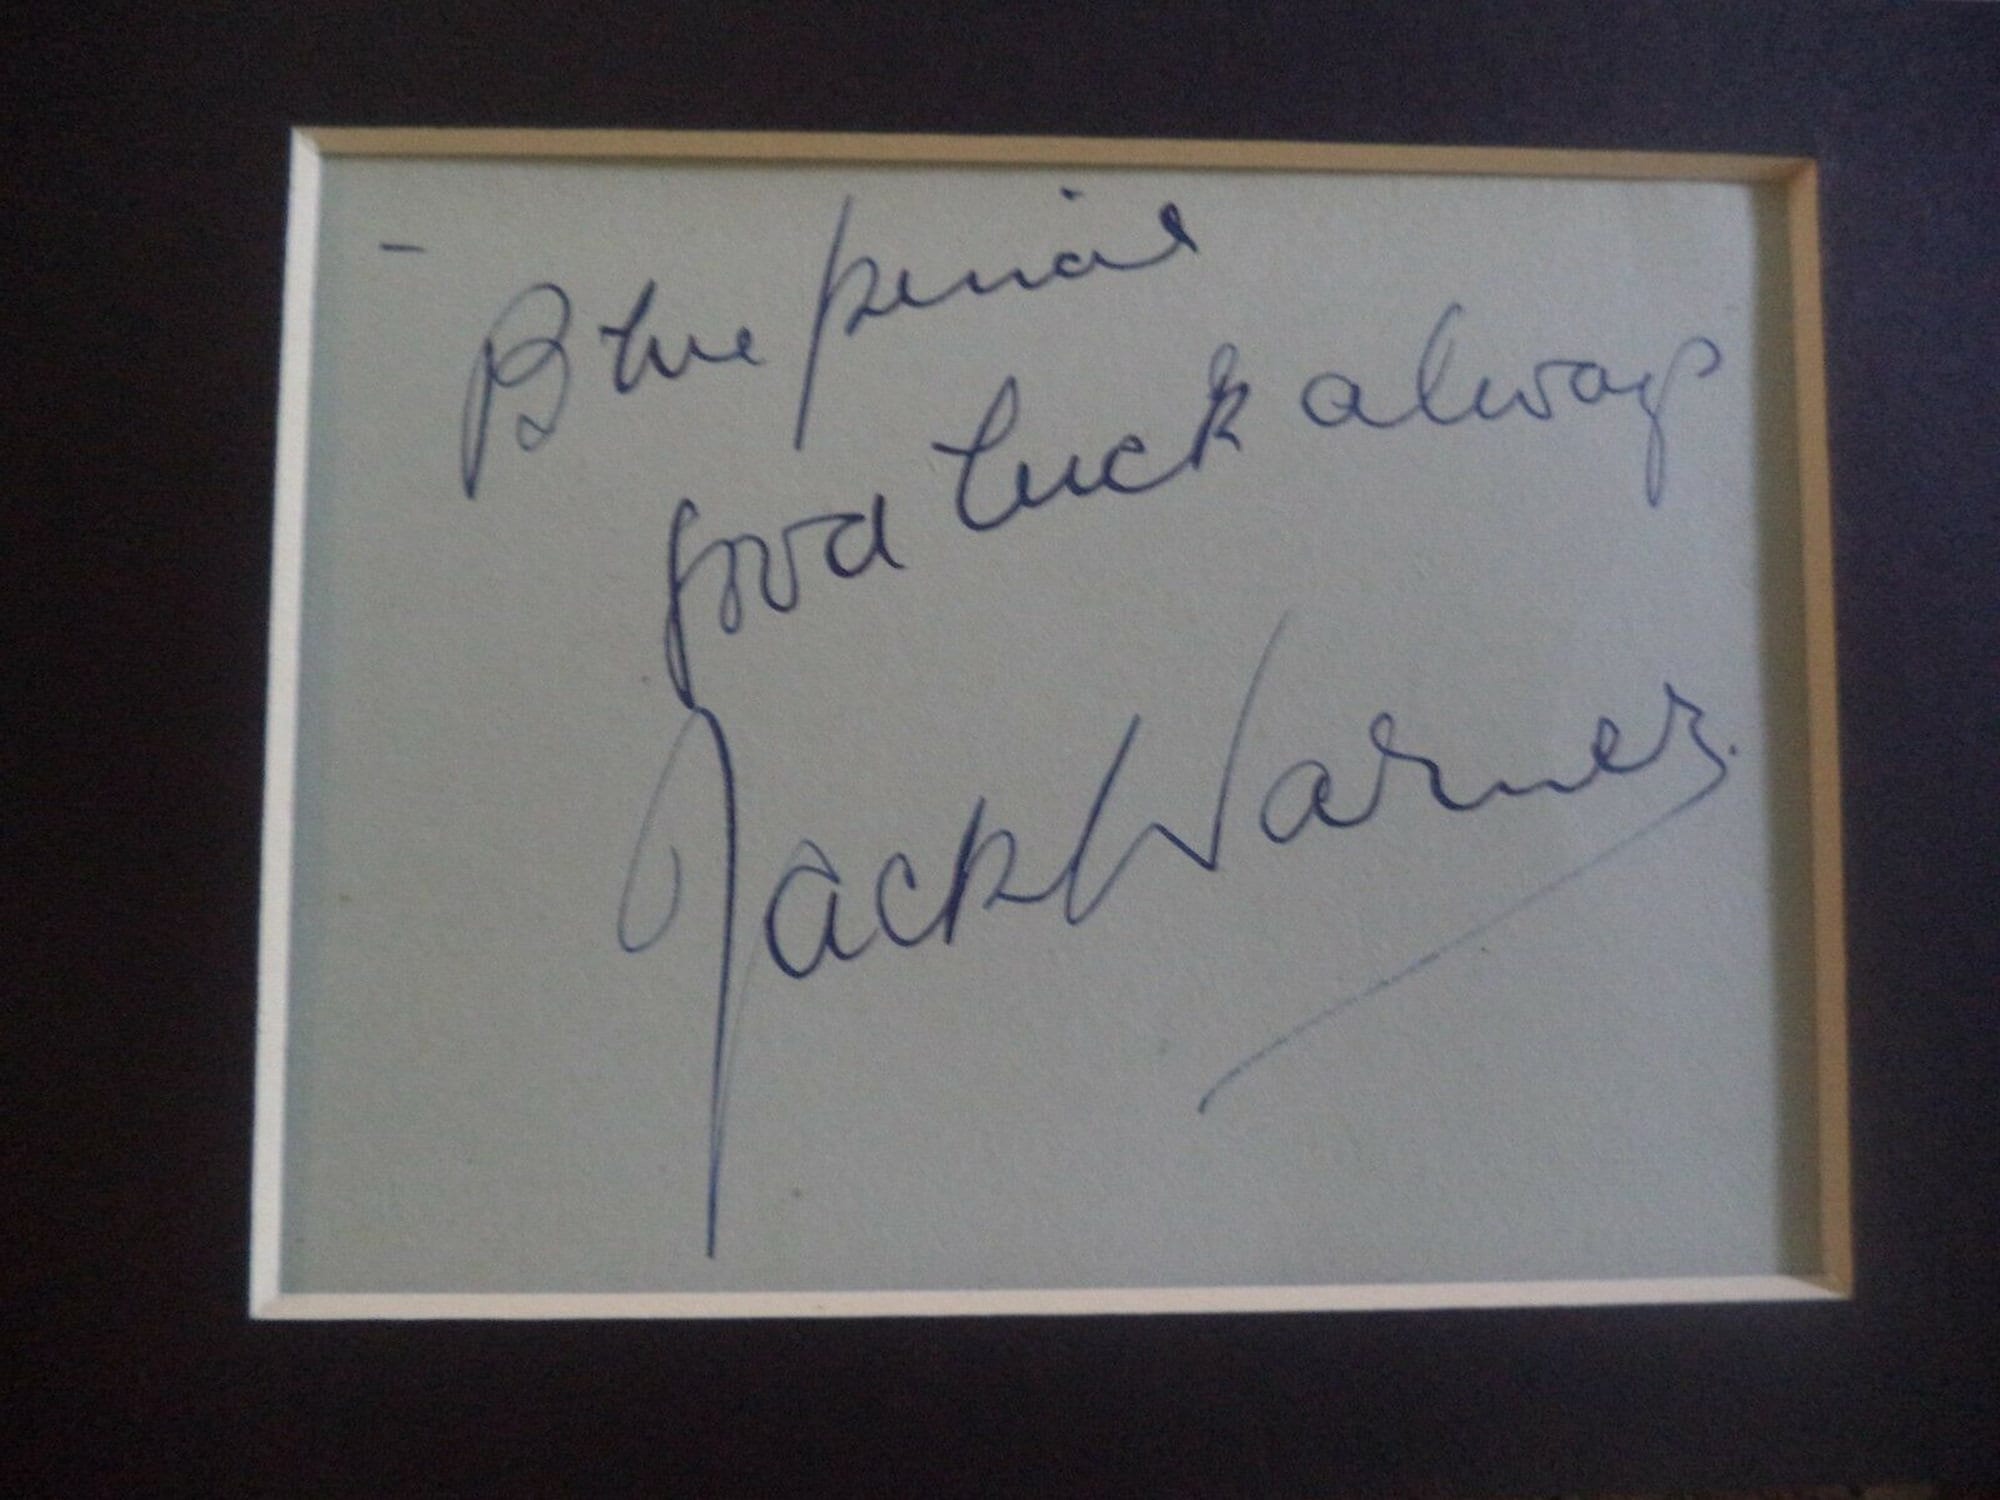 - Blue pencil
good luck always
Jack Warner.